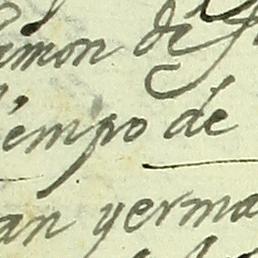 amon de
tiempo de
an yerma